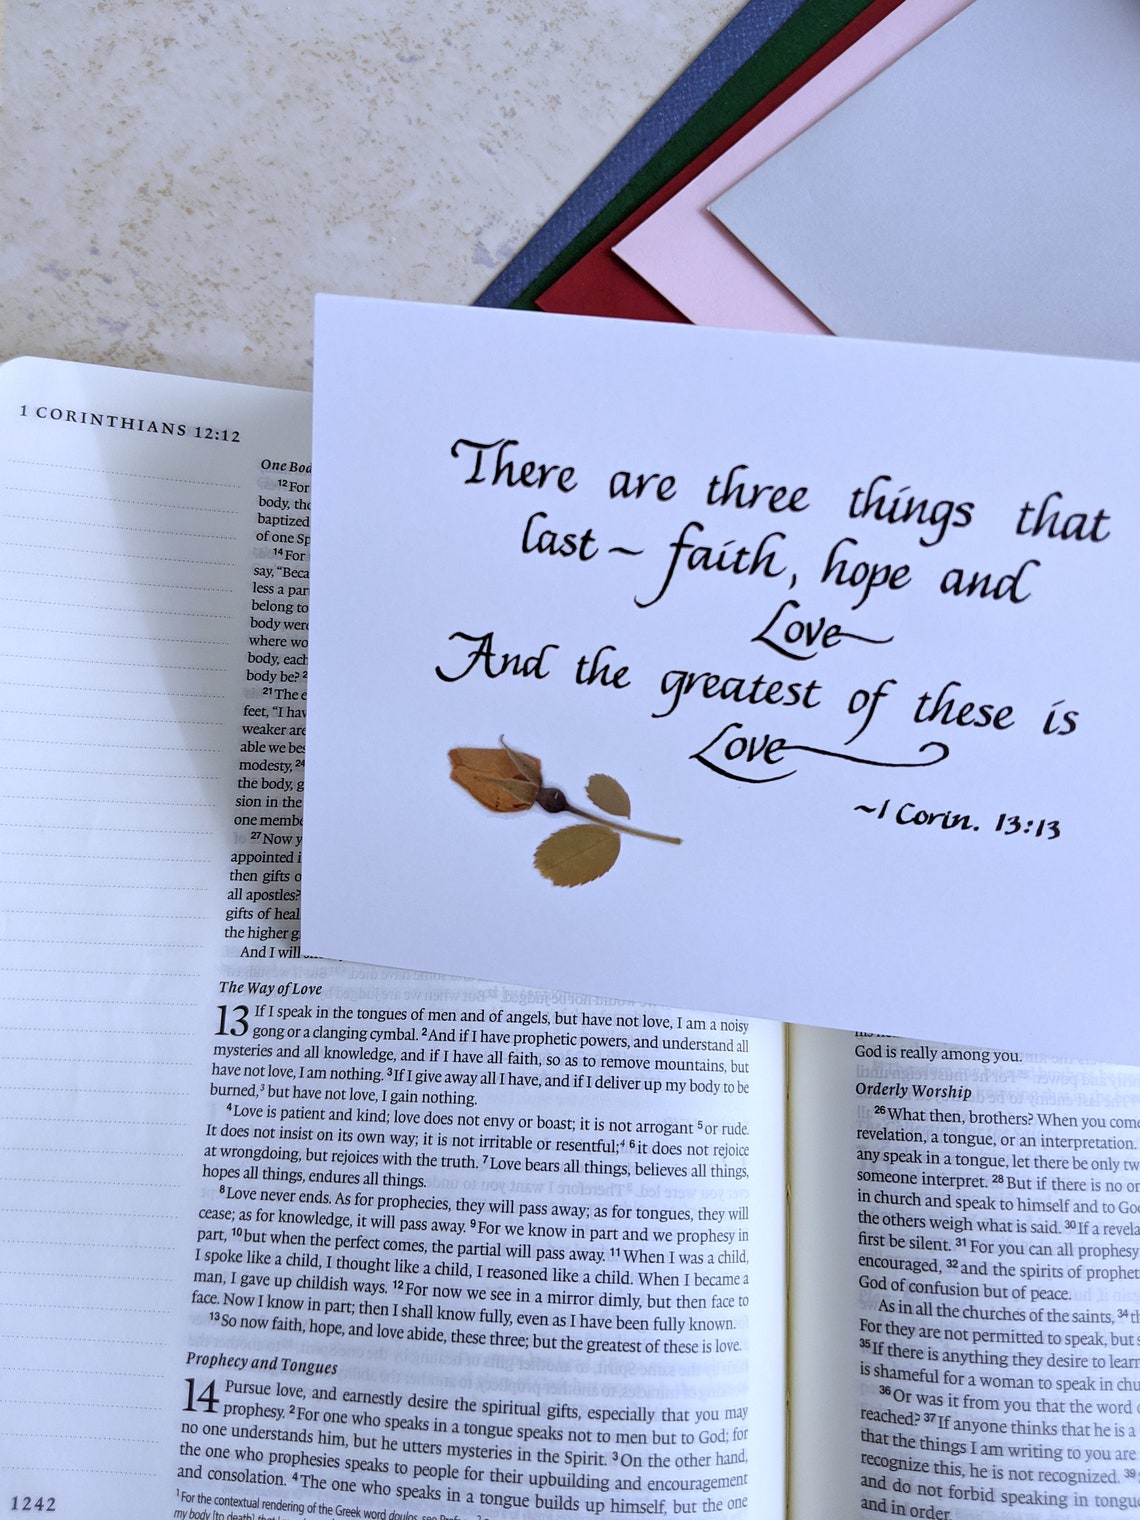 There are three things that
last ~ faith, hope and
Love
And the greatest of these is
Love
~1 Corin. 13:13
1 CORINTHIANS 12:12
One
12For
body,
baptized
of one
14For
say,
less a
belong to
body were
where
body, each
body be?
21The
feet, “I
weaker are
able we
modesty, 24
the body,
sion in the
one
27Now
appointed
then gifts
all apostles?
gifts of
the higher
And I will
The Way of Love
13 If I speak in the tongues of men and of angels, but have not love, I am a noisy
gong or a clanging cymbal. 2And if I have prophetic powers, and understand all
mysteries and all knowledge, and if I have all faith, so as to remove mountains, but
have not love, I am nothing. 3If I give away all I have, and if I deliver up my body to be
burned,3 but have not love, I gain nothing.
4Love is patient and kind; love does not envy or boast; it is not arrogant 5or rude.
It does not insist on its own way; it is not irritable or resentful;4 6it does not rejoice
at wrongdoing, but rejoices with the truth. 7Love bears all things, believes all things,
hopes all things, endures all things.
8Love never ends. As for prophecies, they will pass away; as for tongues, they will
cease; as for knowledge, it will pass away. 9For we know in part and we prophesy in
part, 10but when the perfect comes, the partial will pass away. 11When I was a child,
I spoke like a child, I thought like a child, I reasoned like a child. When I became a
man, I gave up childish ways. 12For now we see in a mirror dimly, but then face to
face. Now I know in part; then I shall know fully, even as I have been fully known.
13So now faith, hope, and love abide, these three; but the greatest of these is love.
Prophecy and Tongues
14 Pursue love, and earnestly desire the spiritual gifts, especially that you may
prophesy. 2For one who speaks in a tongue speaks not to men but to God; for
no one understands him, but he utters mysteries in the Spirit. 3On the other hand,
the one who prophesies speaks to people for their upbuilding and encouragement
and consolation. 4The one who speaks in a tongue builds up himself, but the one
1For the contextual rendering of the Greek word doulos, see
my body [to death]
1242
God is really among you.
Orderly Worship
26What then, brothers? When you come
revelation, a tongue, or an interpretation.
any speak in a tongue, let there be only
someone interpret. 28But if there is no
in church and speak to himself and to
the others weigh what is said. 30If a
first be silent. 31For you can all prophesy
encouraged, 32and the spirits of
God of confusion but of peace.
As in all the churches of the saints, 34
For they are not permitted to speak, but
35If there is anything they desire to learn
is shameful for a woman to speak in
36Or was it from you that the word
reached? 37If anyone thinks that he is a
that the things I am writing to you are
recognize this, he is not recognized. 39
and do not forbid speaking in
and in order.